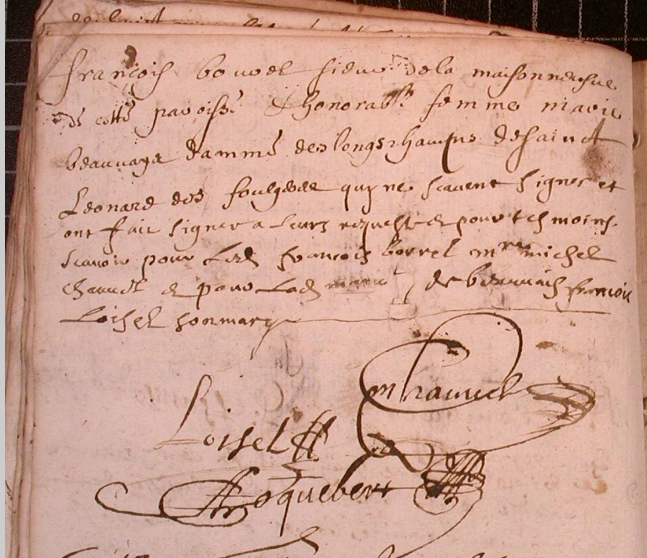 francois bouvel sieur de la maisonneufve
de cette paroisse & honorable femme marie
beauvays damme des longschamps de sainct
Leonard des foulgeres quy ne scavent signer et
ont fait signer a leurs requestes pour tesmoins
scavoir pour led francois bouvel mre michel
chauvel & pour lad marie de beauvais francois
Loisel son mary
mchauvel
Loisel
Roquebert